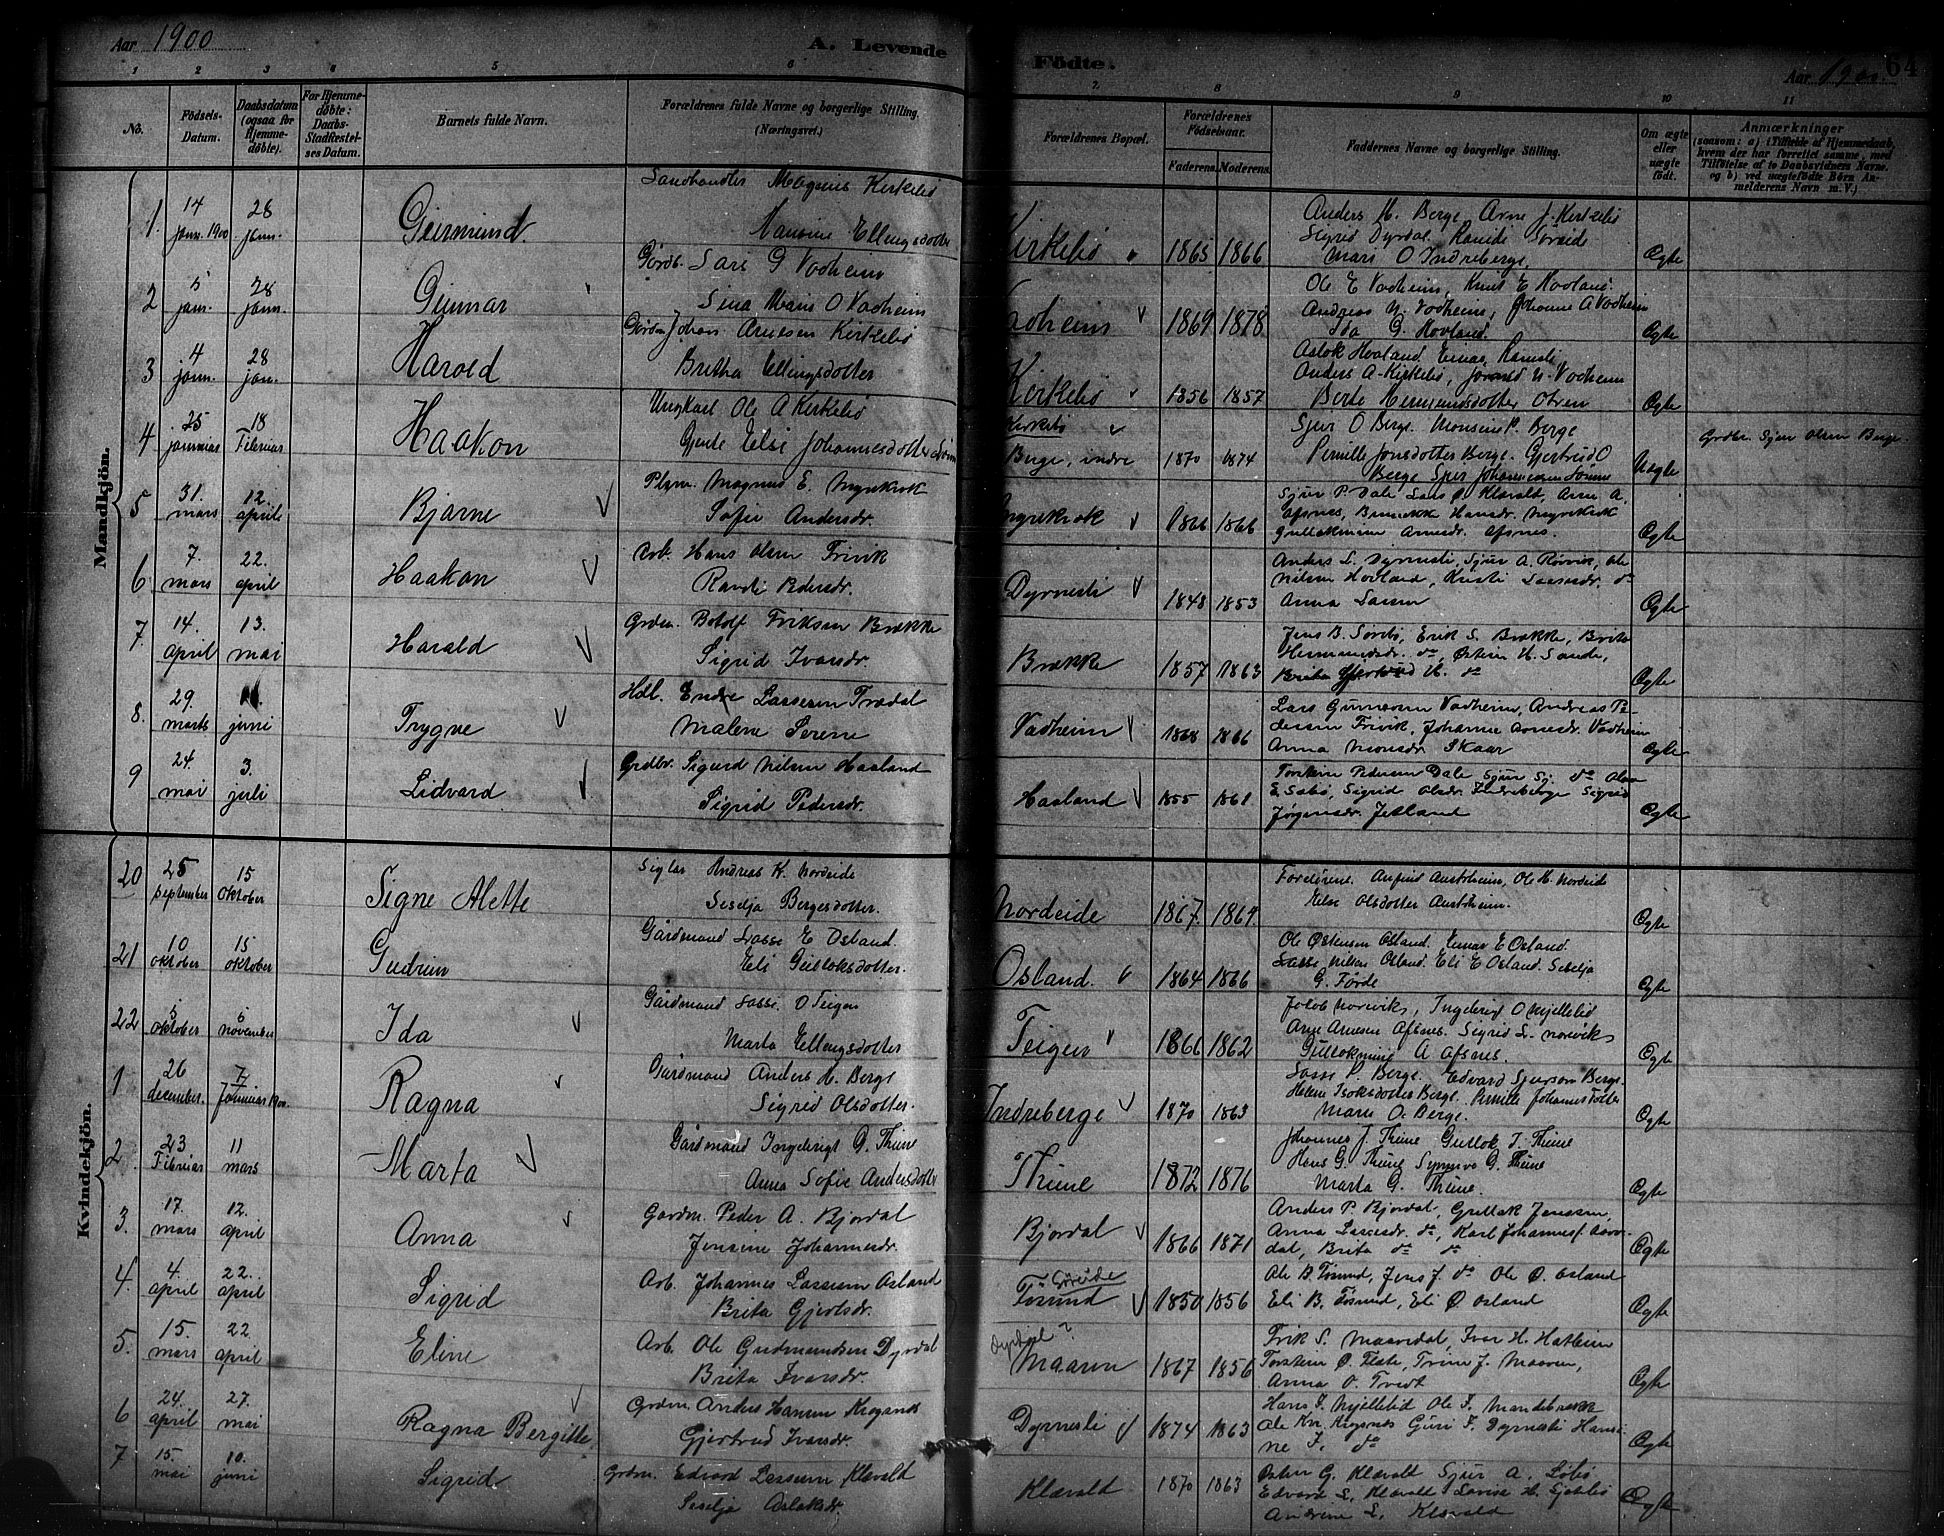 Aar 1900
A. Levende
Födte.
Aar 1900
64
1 2 3 4 5 6 7 8 9 10 11
No.
Födsels-
Datum.
Daabsdatum
(ogsaa for
Hjemme-
döbte).
For Hjemme-
döbte:
Daabs-
Stadfæstel-
ses Datum.
Barnets fulde Navn.
Forældrenes fulde Navne og borgerlige Stilling.
(Næringsvei.)
Forældrenes Bopæl.
Forældrenes
Födselsaar.
Faderens.
Moderens.
Faddernes Navne og borgerlige Stilling.
Om ægte
eller
uægte
født.
Anmærkninger
(saasom: a) i Tilfælde af Hjemmedaab,
hvem der har forrettet samme, med
Tilföielse af to Daabsvidners Navne.
og b) ved uægtefödte Börn An-
melderens Navn m. V.)
Mandkjön.
1. 14 jann. 1900 28 jann. Geirmund. Landhandler Magnus Kirkebö
Ellingsdotter
Kirkebö 1865 1866
Anders H. Berge, Arne J. Kirkebö
Sigrid Dyrdal
Mari O Indreberge. Ægte
2 5 jann. 28 jann. Gunnar Gårdb. Lars G Vadheim
Sina Marie O Vadheim
Vadheim 1869 1878
Ole E Vadheim, Knut E Hovland.
Andreas N. Vadheim, Johanne A Vadheim
Ida G. Hovland. Ægte
3 4 jann. 28 jan. Harold Gårdm Johan Arnesen Kirkebö
Britha Ellingsdotter
Kirkebö 1856 1857
Anders A. Kirkebö, N. Vadheim
Berte Hermundsdotter Ægte
4 25 januar 18 Februar Haakon Ungkarl Ole A Kirkebö
Gjente Else Johannesdotter
Kirkebö
Berge, indre 1870 1874
Sjur O Berge. Monsine P. Berge
Pernille Jonsdotter Berge. Gjertrud O
Berge Sjur Johannessen
Uægte
Grdbr. Sjur Olsen Berge.
5 31. mars 12. aprile Bjarne Magnus E. Myrekrok
Sofie Andersdr.
Myrekrok 1866 1866
Sjur P. Dale Lars Ø. Klævald, Arne A.
Afsnes, Hansdr. Myrekrok
Arnesdr. Afsnes. Ægte
6 7 mars 22. april Haakon Arb. Hans Olsen Frivik
Randi Pedersdr.
Dyrnesli 1848 1853
Anders L. Dyrnesli, Sjur A. Rörvik, Ole
Nilsen Hovland, Kristi Lassesdr. do
Anna Ægte
7. 14. april 13. mai Harald Grdm. Botolf Eriksen Brække
Sigrid Ivarsdr.
Brække 1857 1863
Jens B. Sörebö, Erik S. Brække, Brita
Hermundsdr. do, Østein H. Sande,
Brita H. do Ægte
8. 29. marts juni Trygve Hdl. Endre Lassesen Trædal
Malene Serine
Vadheim 1868 1866
Lars Gunnarsen Vadheim, Andreas Pe-
dersen Frivik, Johanne Arnesdr. Vadheim
Anna Monsdr. Skaar Ægte
9 24. mai 3. juli Lidvard Grdbr. Sigurd Nilsen Haaland
Sigrid Pedersdr.
Haaland 1855 1861
Torstein Pedersen Dale Sjur Sj. do
Sigrid Olsdr. Indreberge Sigrid
Jørgensdr. Jetland Ægte
Kvindekjön.
20 25 September 15 Oktober Signe Alette Andreas K. Nordeide
Seselja Bergesdotter.
Nordeide 1867. 1864
Forældrene. Anfind Austrheim, Ole H. Nordeide
Else Olsdotter Austrheim. Ægte
21 10 oktober 15 oktober Gudrun Gårdmand Lasse E Osland.
Eli Gulloksdotter.
Osland. 1864 1866
Ole Østensen Osland. Einar E Osland.
Lasse Nilsen Osland. Eli E Osland. Seselja
G. Förde Ægte
22 5 oktober 6 november Ida Gårdmand Lasse O Teigen
Marta Ellingsdotter
Teigen 1866 1862
Jakob Norevik, Ingebrigt O Mjellelid
Arne Arnesen Afsnes. Sigrid L. Norevik
A Afsnes. Ægte
1 26 december. 7 Januar 1900. Ragna Gårdmand Anders H. Berge
Sigrid Olsdotter.
Indreberge 1870 1863
Lasse P Berge. Edvard Sjursson Berge.
Berge. Pernille Johannesdotter
Marie O. Berge. Ægte
2. 23 Februar 11 mars Marta Gårdmand Ingebrigt G. Thune
Anna Sofie Andersdotter
Thune 1872 1876
Johannes J. Thune Gullok I. Thune
Hans G. Thune Synneva G. Thune
Marta G. Thune. Ægte
3. 17. mars 12. april Anna Gardm. Peder A. Bjordal
Jensine Johannesdr.
Bjordal 1866 1871
Anders P. Bjordal, Gullak Jensen,
Anna Lassesdr. do, Karl Johannesf.
dal, Brita do do Ægte
4. 4. april 22. april Sigrid Arb. Johannes Lassesen Osland
Brita Gjertsdr.
Söreide
Tösund 1850 1856
Ole B. Tösund, Jens J. do Ole Ø. Osland
Eli B. Tösund, Eli Ø. Osland Ægte
5. 15. mars 22 april Eline Arb. Ole Gudmundsen Dyrdal
Brita Ivarsdr.
Dyrdal?
Maaren 1867 1856
Erik S. Maaredal, Ivar H. Hatleim
Torstein O. Flete, Trine J. Maaren,
Anna O. Tredt Ægte
6 24. april 27. mai Ragna Bergitte Grdm. Anders Hansen
Gjertrud Ivarsdr.
Dyrnesli 1874 1863
Hans J. Mjellelid Ole I. Mandebrekk
Guri I. Dyrnesli Hansi-
ne I. do Ægte
7 15. mai 10. juni Sigrid Grdm. Edvard Lassesen Klævald
Seselja Aslaksdr.
Klævald 1870 1863
Østen G. Klævald Sjur A.
Edvard L. Klævald Lovise H.
Andrine L. Klævald Ægte